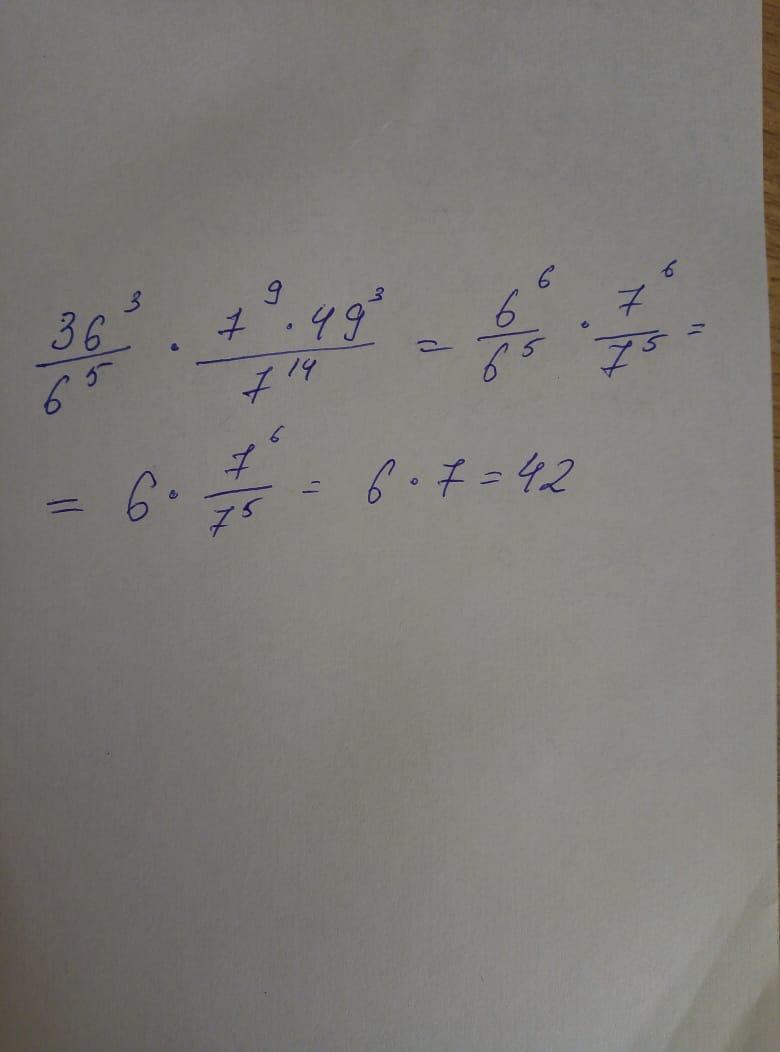 36³/6⁵ · 7⁹ · 49³/7¹⁴ = 6⁶/6⁵ · 7⁶/7⁵ =
= 6 · 7⁶/7⁵ = 6 · 7 = 42